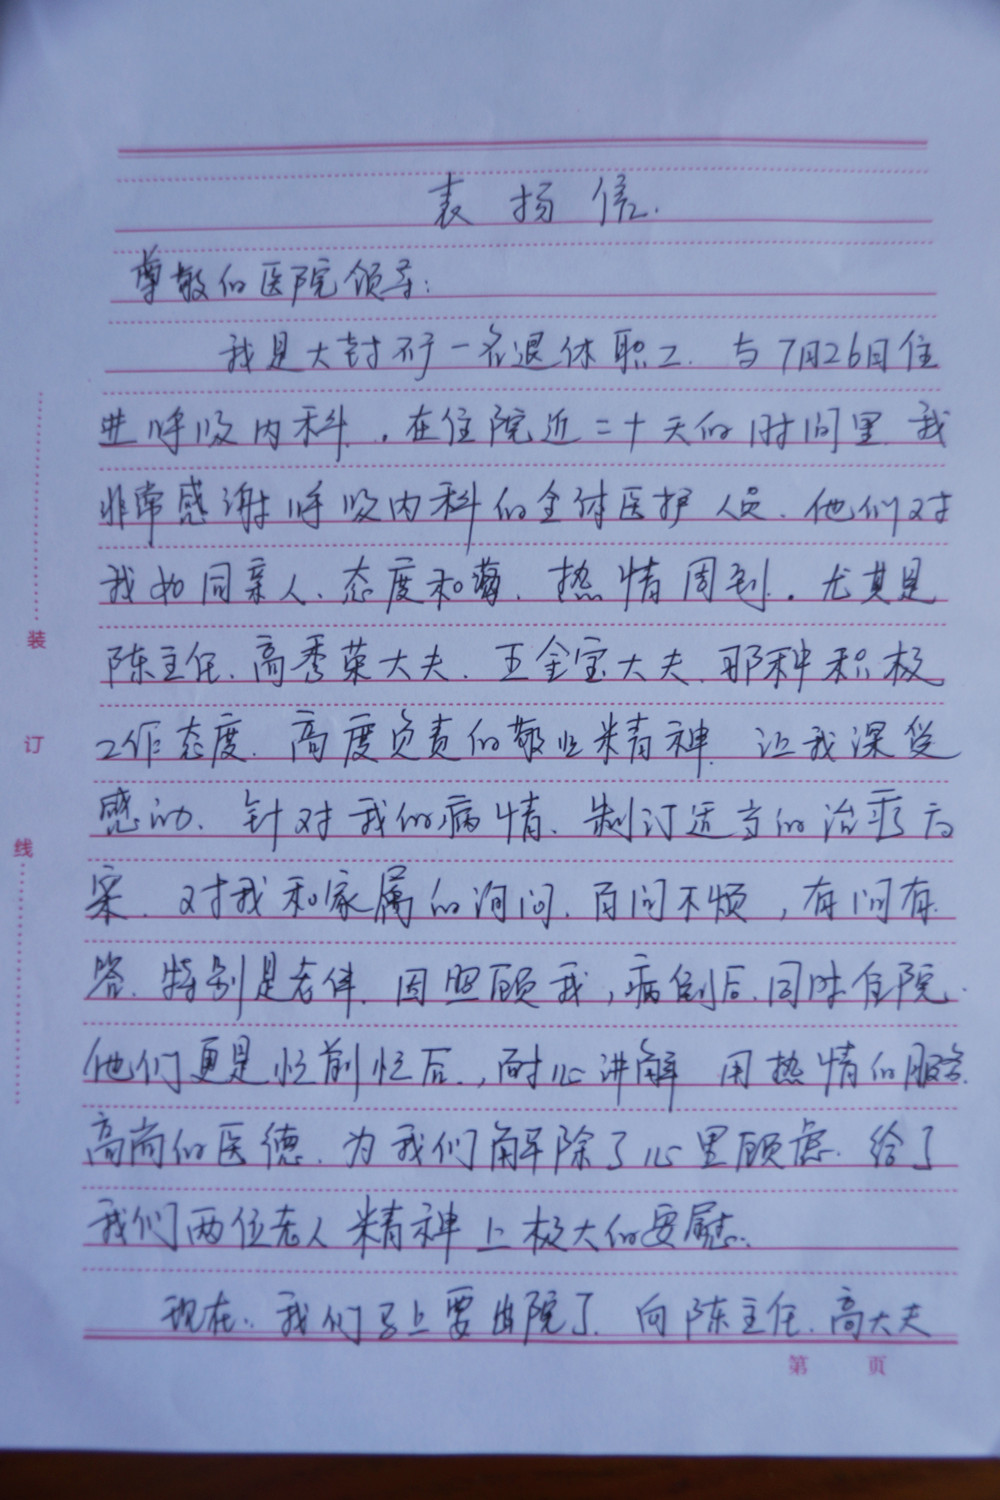 表扬信.
尊敬的医院领导:
我是大封不于一名退休职工.与7月26日住
进呼吸内科.在住院近二十天的时间里.我
非常感谢呼吸内科的全体医护人员.他们对
我如同亲人、态度和蔼、热情周到.尤其是
陈主任、高秀荣大夫、王金宝大夫、那种积极
工作态度、高度负责的敬业精神、让我深受
感动.针对我的病情、制订适当的治疗方
案.对我和家属的询问、百问不烦,有问有
答.特别是老伴.因照顾我,病倒后.同时住院.
他们更是忙前忙后.,耐心讲解 用热情的服务.
高尚的医德.为我们解除了心里顾虑.给了
我们两位老人精神上极大的安慰.
现在.我们马上要出院了.向陈主任、高大夫
装
订
线
第 页